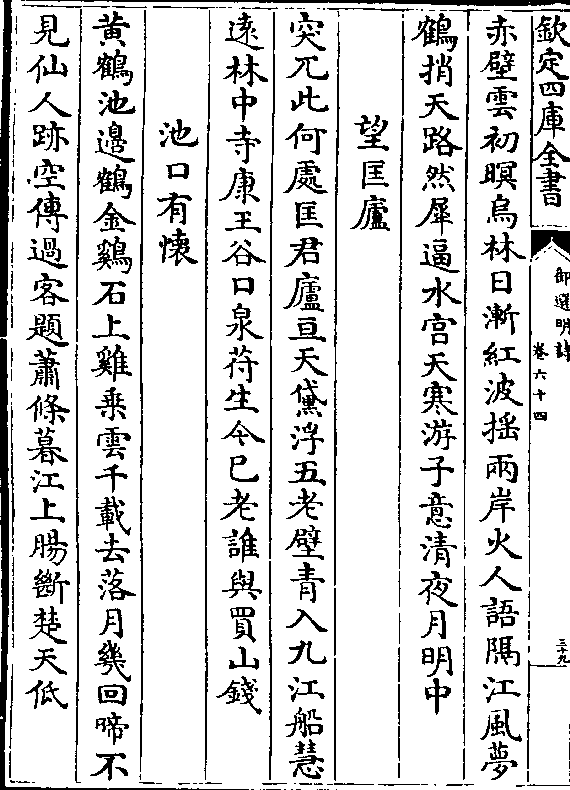 欽定四庫全書
御選明詩
卷六十四
三十九
赤壁雲初暝烏林日漸紅波揺兩岸火人語隔江風夢
鶴捎天路然犀逼水宫天寒游子意清夜月明中
望匡廬
突兀此何處匡君廬亘天黛浮五老壁青入九江船慧
逺林中寺康王谷口泉苻生今已老誰與買山錢
池口有懷
黄鶴池邊鶴金鷄石上雞乗雲千載去落月幾回啼不
見仙人跡空傳過客題蕭條暮江上腸斷楚天低